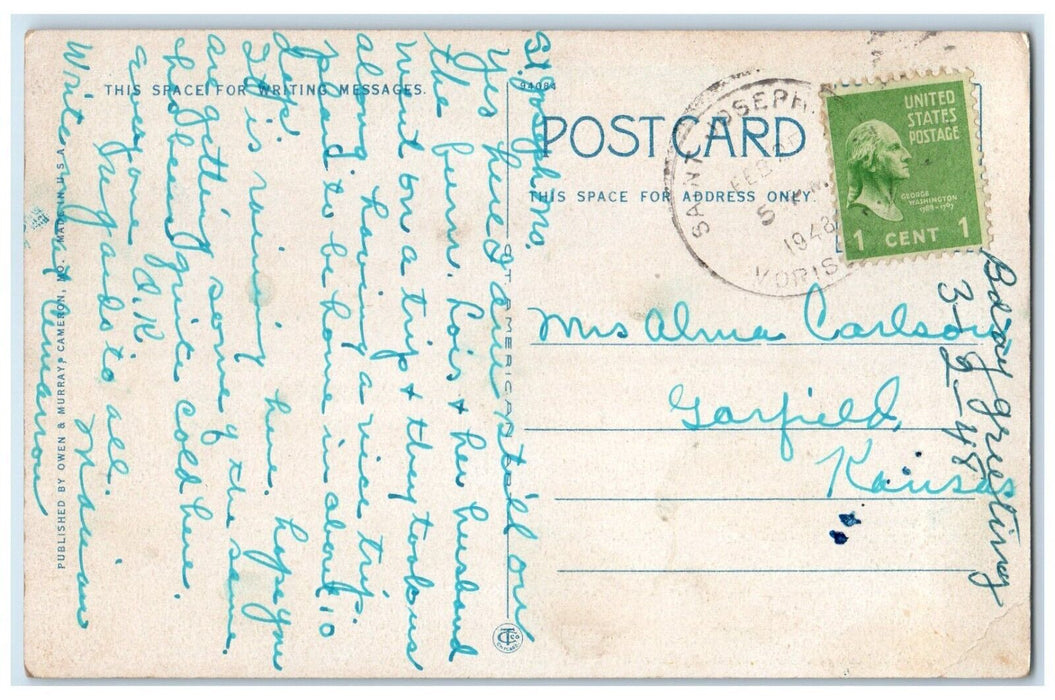 THIS SPACE FOR WRITING MESSAGES.
94084
POST CARD
THIS SPACE FOR ADDRESS ONLY.
SAINT JOSEPH
FEB
5 PM
1948
UNITED
STATES
POSTAGE
GEORGE
WASHINGTON
1789-1797
1 CENT 1
Mrs Alma Carlson
Garfield,
Kansas
Bday greeting
3-2-48
St. Joseph Mo.
Yes here I am still on
the bum. Lois & her husband
went on a trip & they took us
along, having a nice trip.
plan to be home in about 10
days
It is raining here. hope you
are getting some of the same.
has been quite cold here.
Everyone O.K.
Regards to all.
Write me at Cimarron
PUBLISHED BY OWEN & MURRAY, CAMERON, MO. MADE IN U.S.A.
C.T. AMERICAN ART